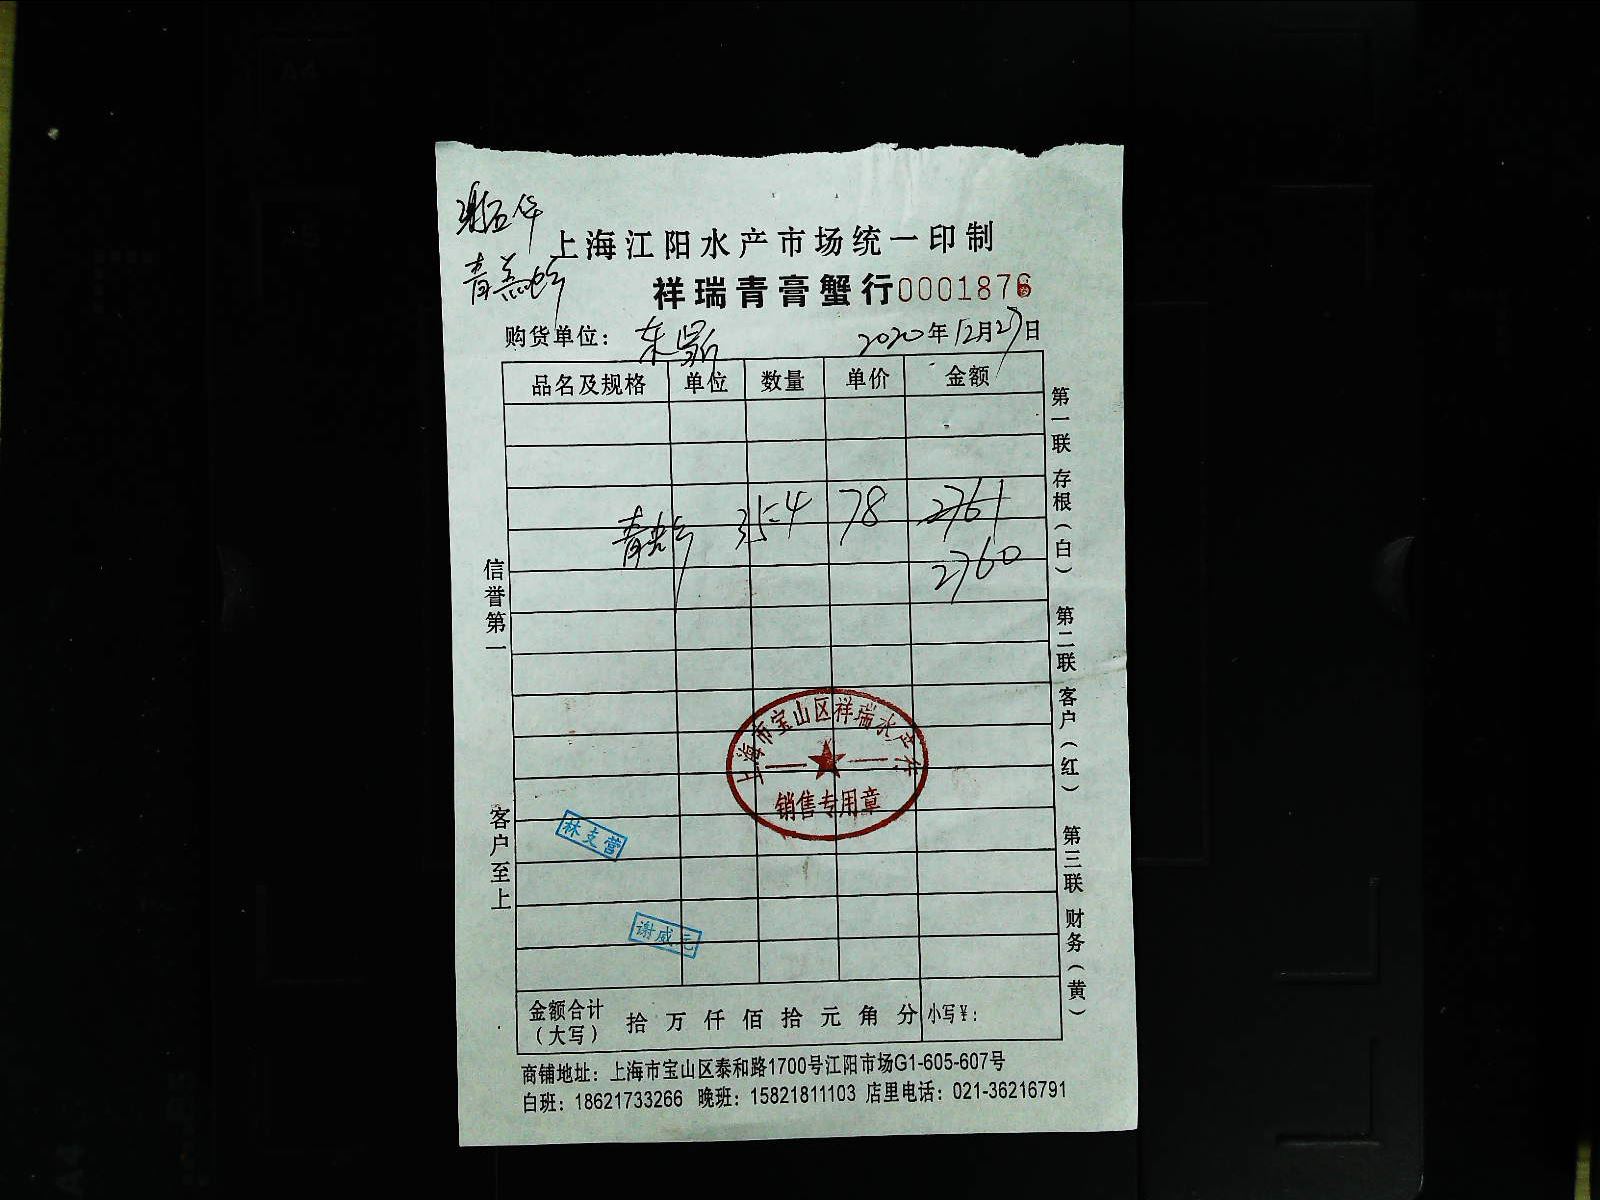 上海江阳水产市场统一印制
祥瑞青膏蟹行 0001876
购货单位：东
2020年12月27日
品名及规格 单位 数量 单价 金额
青 35.4 78 2761
2760
信誉第一
客户至上
第一联 存根（白） 第二联 客户（红） 第三联 财务（黄）
上海市宝山区祥瑞水产行
销售专用章
林支营
谢威元
金额合计（大写） 拾 万 仟 佰 拾 元 角 分 小写¥：
商铺地址：上海市宝山区泰和路1700号江阳市场G1-605-607号
白班：18621733266 晚班：15821811103 店里电话：021-36216791